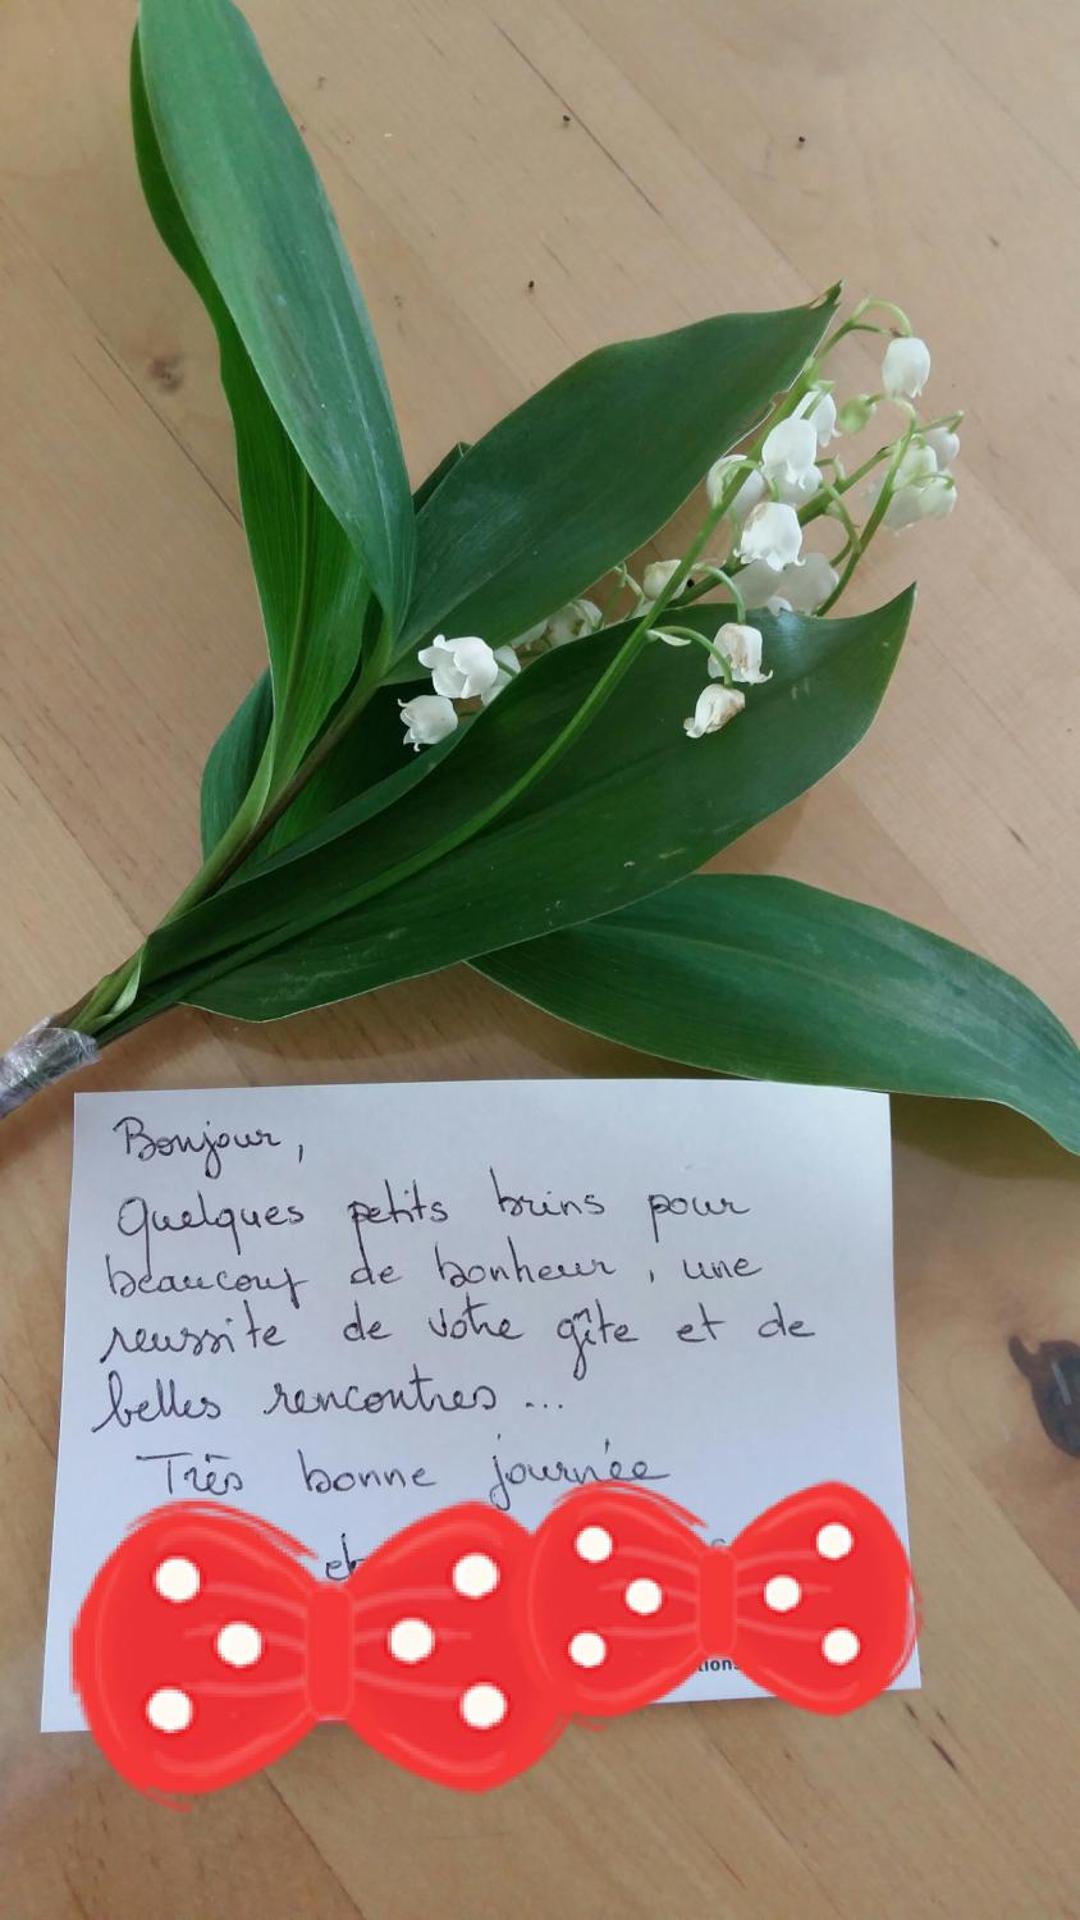 Bonjour,
Quelques petits brins pour
beaucoup de bonheur, une
reussite de votre gîte et de
belles rencontres ...
Très bonne journée
et
tions